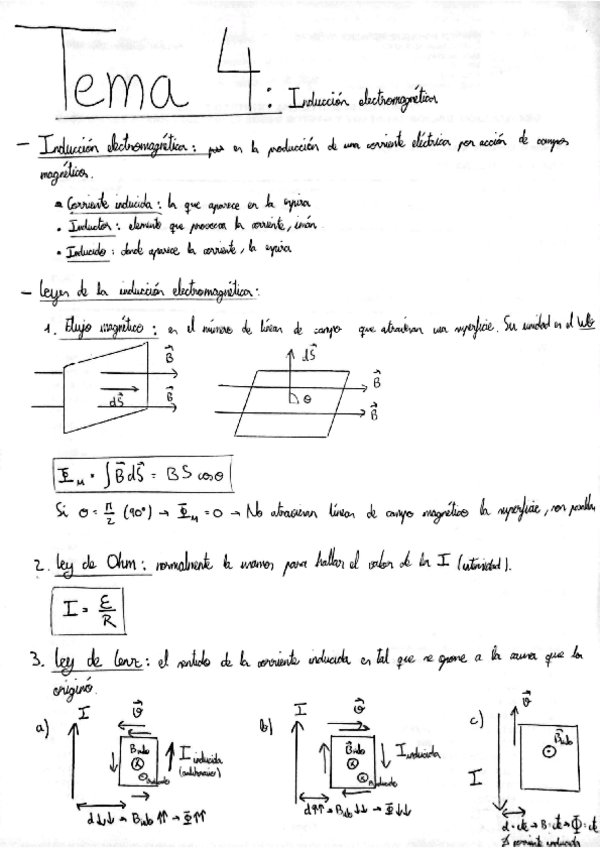 Tema 4: Inducción electromagnética
- Inducción electromagnética: es la producción de una corriente eléctrica por acción de campos
magnéticos.
• Corriente inducida: la que aparece en la espira
• Inductor: elemento que provoca la corriente, imán.
• Inducido: donde aparece la corriente, la espira
- Leyes de la inducción electromagnética:
1. Flujo magnético: es el número de líneas de campo que atraviesan una superficie. Su unidad es el Wb
B⃗
dS⃗
B⃗
dS⃗
B⃗
θ
B⃗
Φ_M = ∫B⃗dS⃗ = BS cosθ
Si θ = π/2 (90°) → Φ_M = 0 → No atraviesan líneas de campo magnético la superficie, son
2. Ley de Ohm: normalmente la usamos para hallar el valor de la I (intensidad).
I = ε/R
3. Ley de Lenz: el sentido de la corriente inducida es tal que se opone a la causa que la
originó.
a) I v⃗
B hilo
I inducida
(antihorario)
d↓↓ → B hilo ↑↑ → Φ↑↑
b) I v⃗
B⃗ hilo
I inducida
d↑↑ → B hilo ↓↓ → Φ↓↓
c) v⃗
B⃗ hilo
I
d = cte → B = cte → Φ = cte
∄ corriente inducida